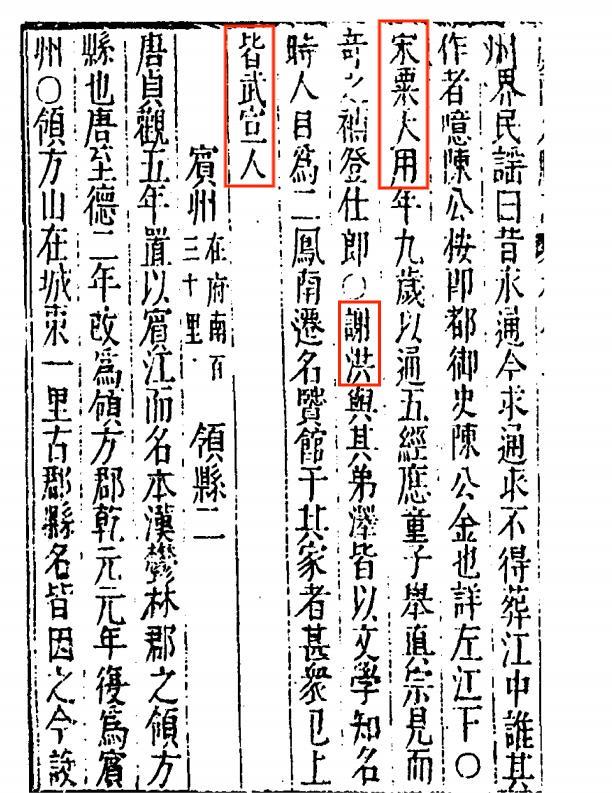 州界民謡曰昔永通今求通求不得葬江中誰其
作者噫陳公按即都御史陳公金也詳左江下○
宋粟大用年九歲以通五經應童子舉真宗見而
奇之補登仕郎○謝洪與其弟澤皆以文學知名
時人目為二鳳南遷名賢館于其家者甚衆已上
皆武宣人
賓州在府南百三十里領縣二
唐貞觀五年置以賓江而名本漢鬱林郡之領方
縣也唐至德二年改為領方郡乾元元年復為賓
州○領方山在城東一里古郡縣名皆因之今設